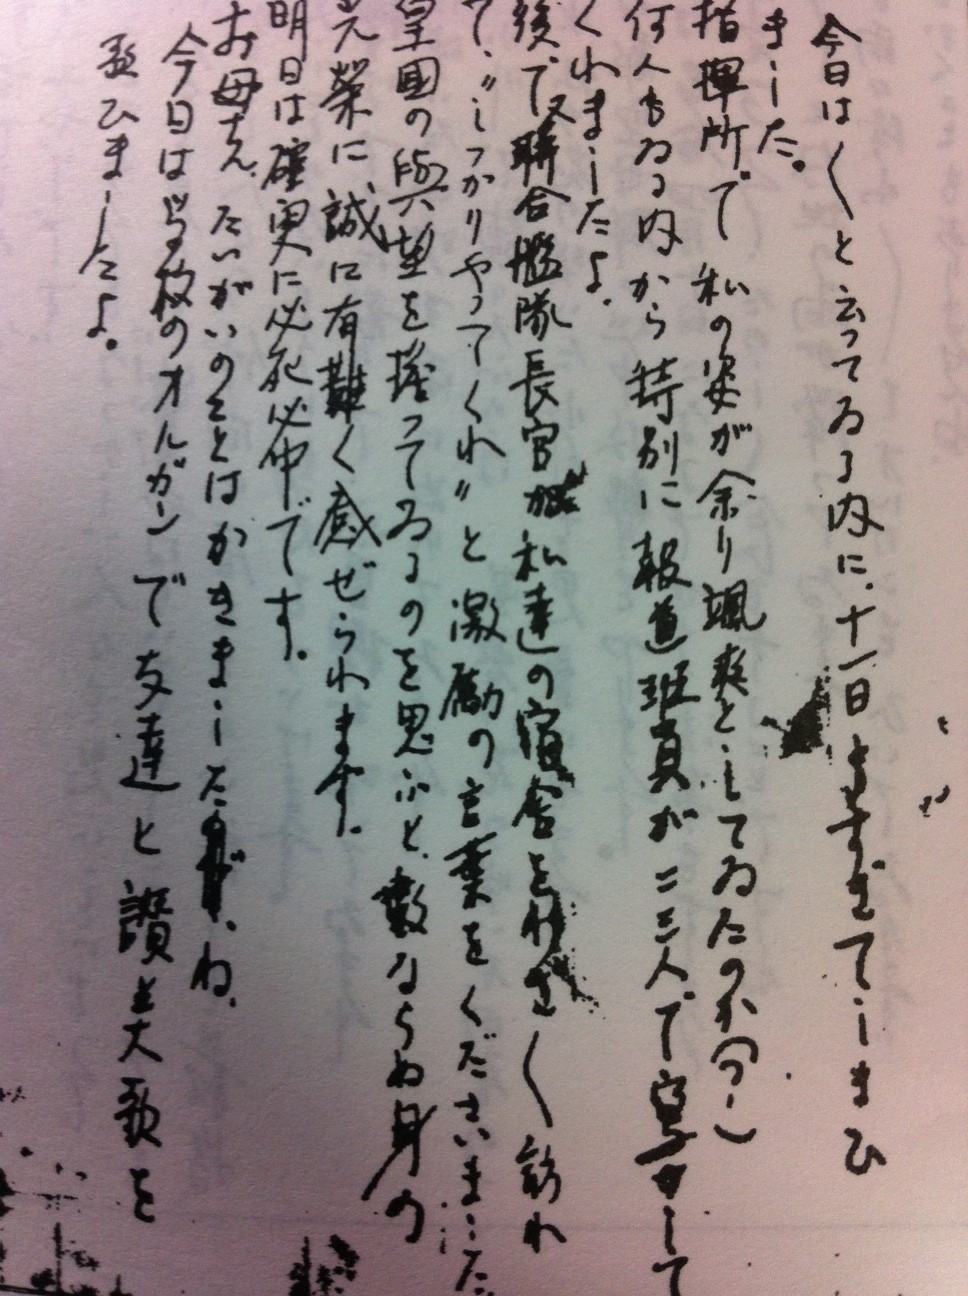 今日は〱と云つてゐる内に、十一日もすぎてしまひ
ました。
指揮所で私の姿が余り颯爽としてゐたのか(つ)し
何人もゐる内から特別に報道班員が二三人で寫して
くれましたよ。
後で又聯合艦隊長官が私達の宿舎をわざ〱訪れ
て、〝しつかりやつてくれ〟と激励の言葉をくださいました
皇國の興望を擔つてゐるのを思ふと、数ならぬ身の
光榮に、誠に有難く感ぜられます。
明日は確実に必死必中です。
お母さん、たいがいのことはかきましたね、
今日は学校のオルガンで友達と讃美歌を
歌ひましたよ。